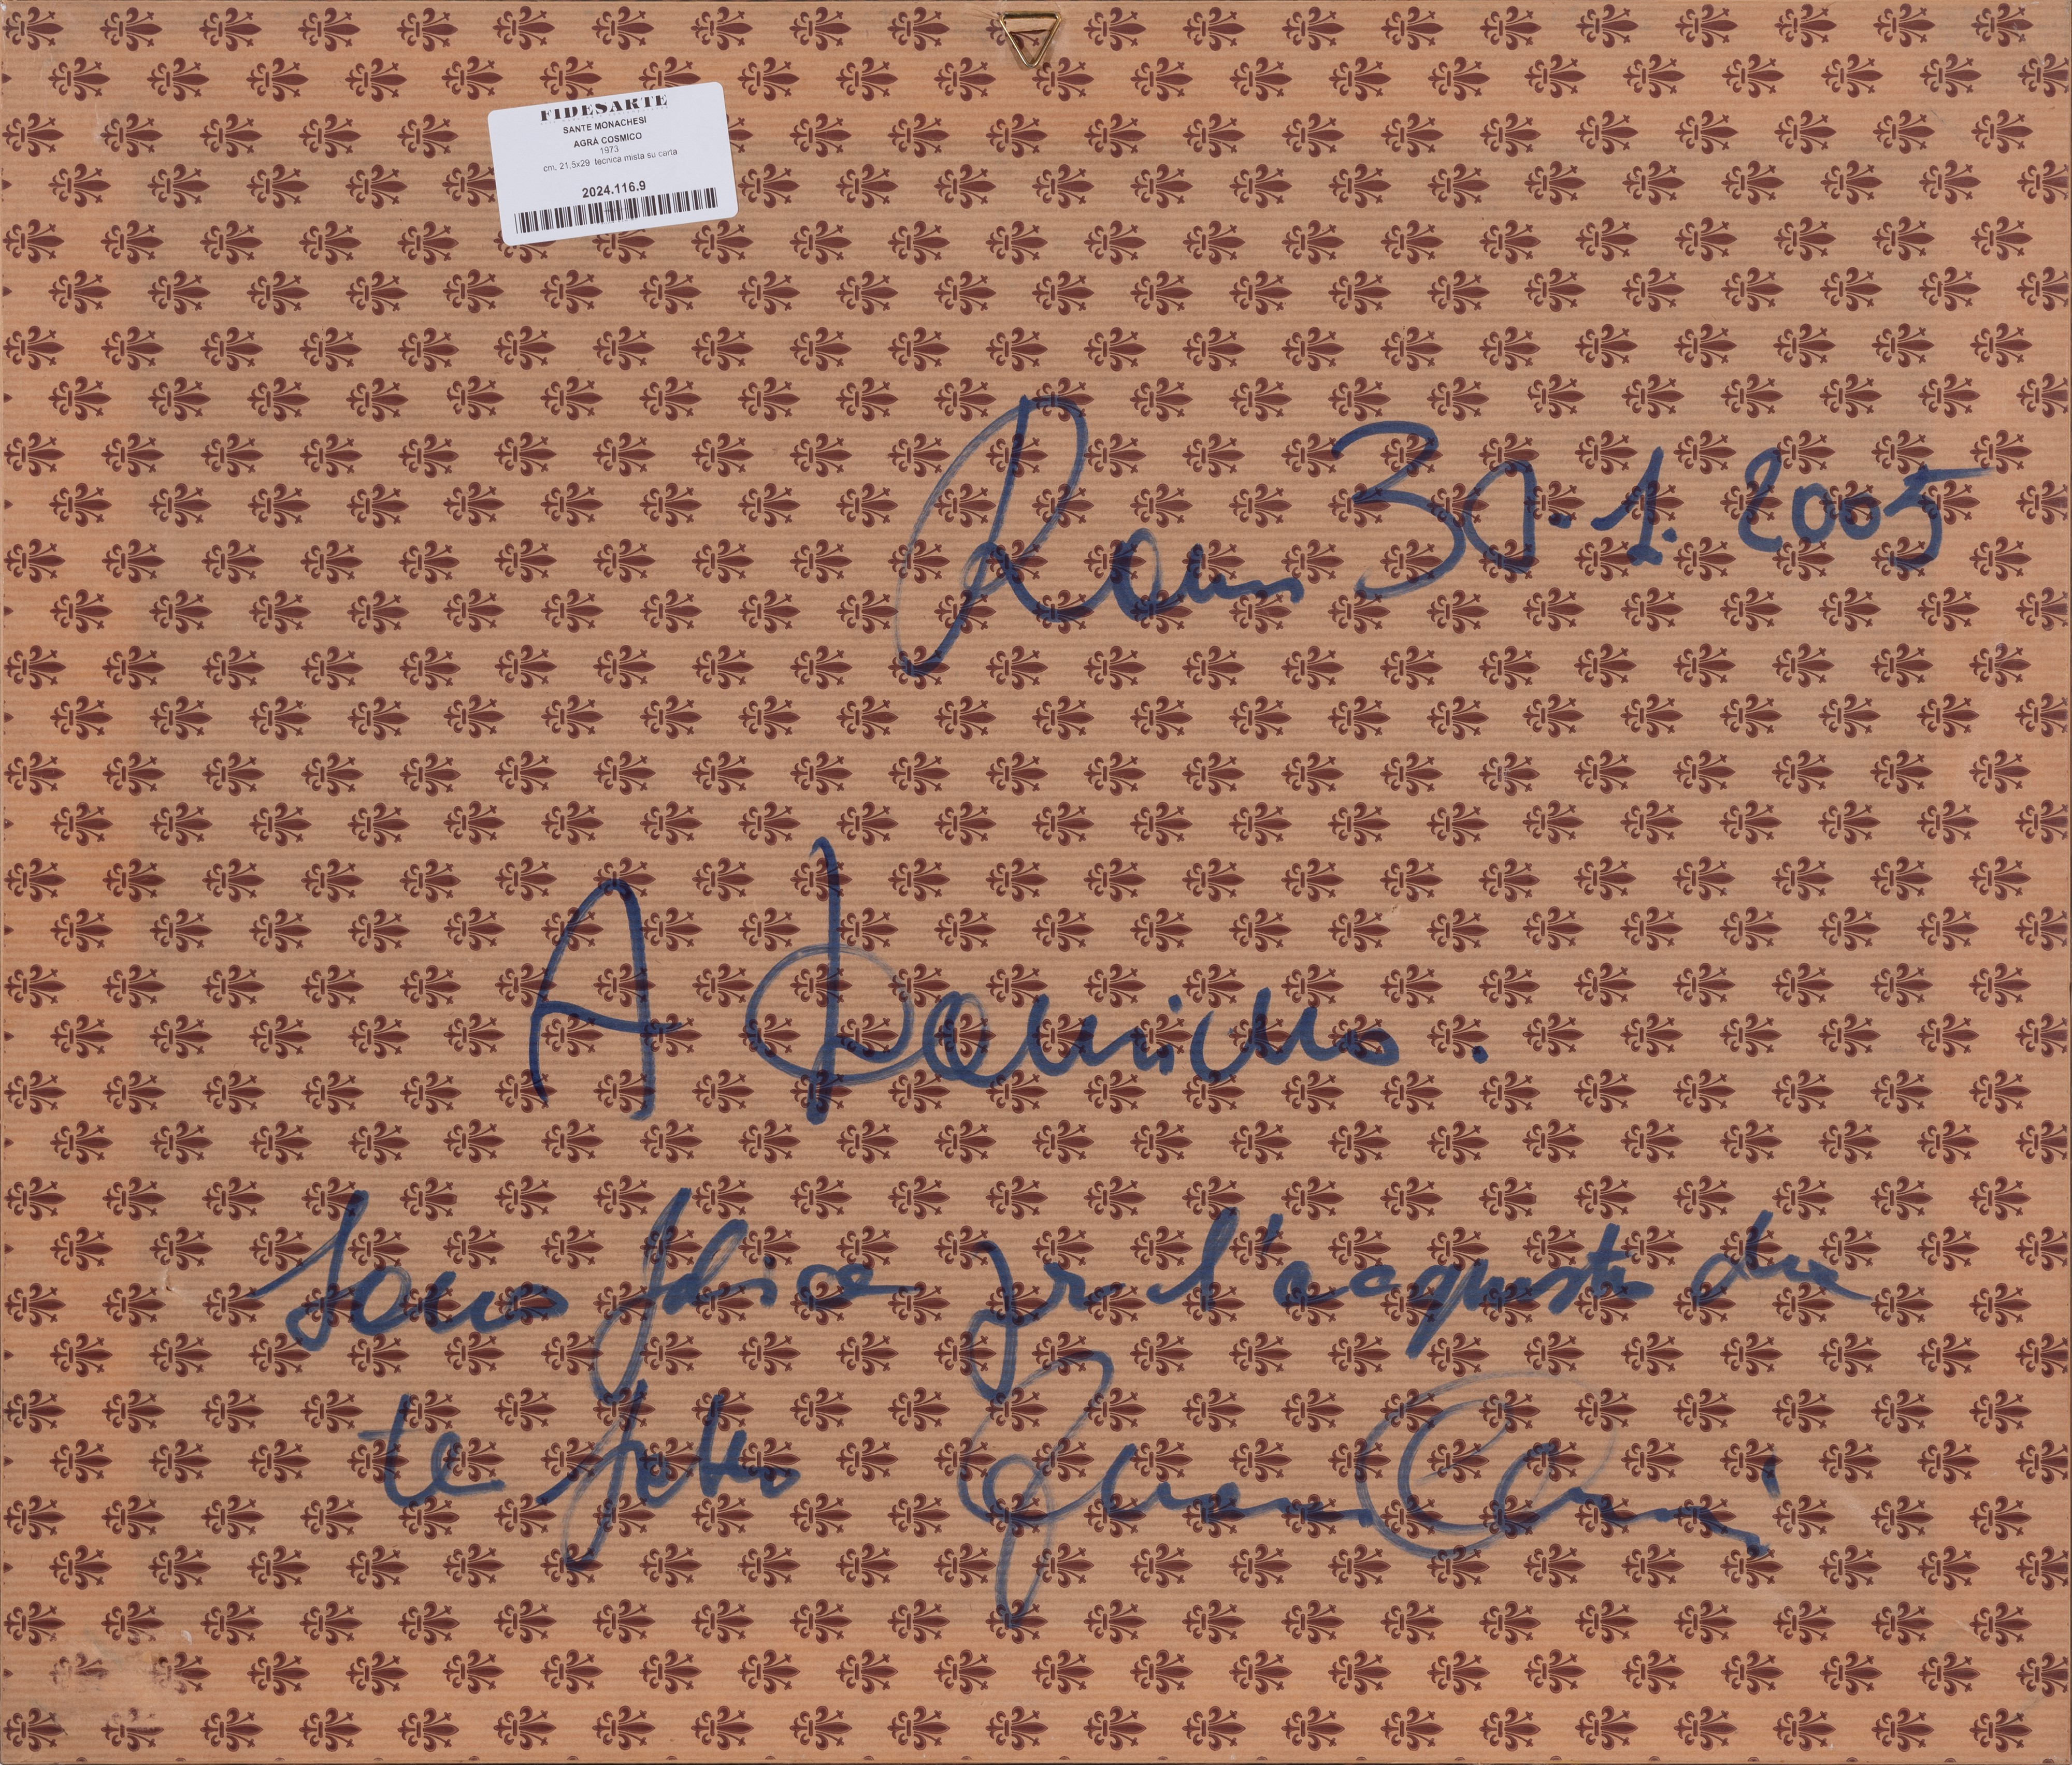 FIDESARTE
SANTE MONACHESI
AGRÀ COSMICO
1973
cm. 21,5x29 tecnica mista su carta
2024.116.9
Roma 30.1.2005
A
Sono felice per l'acquisto che
te fatto